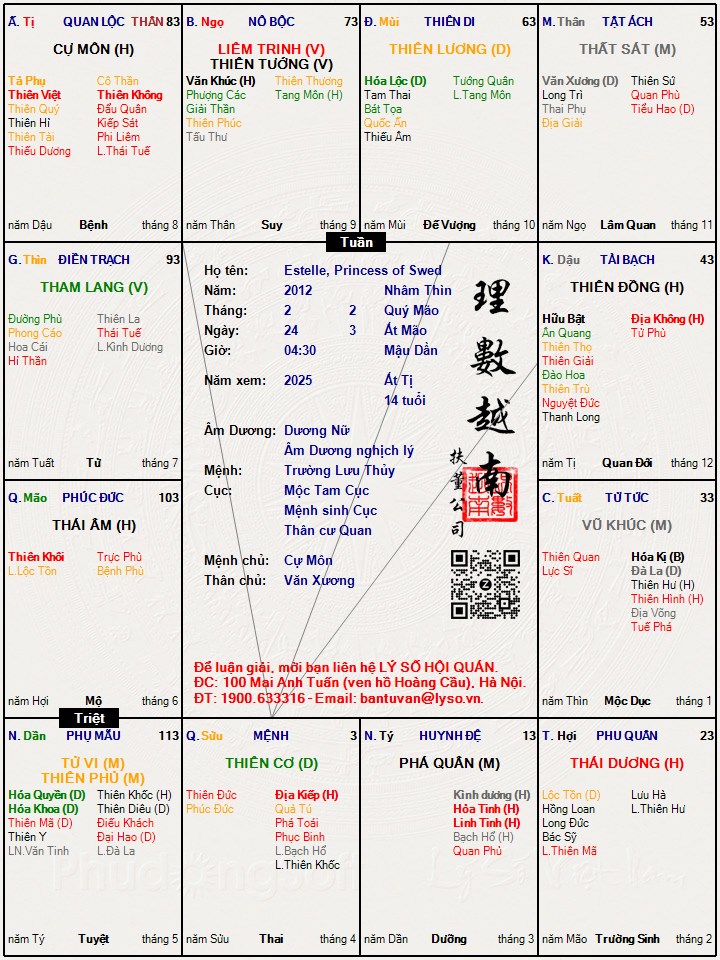 Ấ. Tị QUAN LỘC THÂN 83
CỰ MÔN (H)
Tả Phụ Cô Thần
Thiên Việt Thiên Không
Thiên Quý Đẩu Quân
Thiên Hỉ Kiếp Sát
Thiên Tài Phi Liêm
Thiếu Dương L.Thái Tuế
năm Dậu Bệnh tháng 8
B. Ngọ NÔ BỘC 73
LIÊM TRINH (V)
THIÊN TƯỚNG (V)
Văn Khúc (H) Thiên Thương
Phượng Các Tang Môn (H)
Giải Thần
Thiên Phúc
Tấu Thư
năm Thân Suy tháng 9
Đ. Mùi THIÊN DI 63
THIÊN LƯƠNG (D)
Hóa Lộc (D) Tướng Quân
Tam Thai L.Tang Môn
Bát Tọa
Quốc Ấn
Thiếu Âm
năm Mùi Đế Vượng tháng 10
M. Thân TẬT ÁCH 53
THẤT SÁT (M)
Văn Xương (D) Thiên Sứ
Long Trì Quan Phù
Thai Phụ Tiểu Hao (D)
Địa Giải
năm Ngọ Lâm Quan tháng 11
G. Thìn ĐIỀN TRẠCH 93
THAM LANG (V)
Đường Phù Thiên La
Phong Cáo Thái Tuế
Hoa Cái L.Kình Dương
Hỉ Thần
năm Tuất Tử tháng 7
Tuần
Họ tên: Estelle, Princess of Swed
Năm: 2012 Nhâm Thìn
Tháng: 2 2 Quý Mão
Ngày: 24 3 Ất Mão
Giờ: 04:30 Mậu Dần
Năm xem: 2025 Ất Tị
14 tuổi
Âm Dương: Dương Nữ
Âm Dương nghịch lý
Mệnh: Trường Lưu Thủy
Cục: Mộc Tam Cục
Mệnh sinh Cục
Thân cư Quan
Mệnh chủ: Cự Môn
Thân chủ: Văn Xương
理數越南
扶董公司
Để luận giải, mời bạn liên hệ LÝ SỐ HỘI QUÁN.
ĐC: 100 Mai Anh Tuấn (ven hồ Hoàng Cầu), Hà Nội.
ĐT: 1900.633316 - Email: bantuvan@lyso.vn.
K. Dậu TÀI BẠCH 43
THIÊN ĐỒNG (H)
Hữu Bật Địa Không (H)
Ân Quang Tử Phù
Thiên Thọ
Thiên Giải
Đào Hoa
Thiên Trù
Nguyệt Đức
Thanh Long
năm Tị Quan Đới tháng 12
Q. Mão PHÚC ĐỨC 103
THÁI ÂM (H)
Thiên Khôi Trực Phù
L.Lộc Tồn Bệnh Phù
năm Hợi Mộ tháng 6
C. Tuất TỬ TỨC 33
VŨ KHÚC (M)
Thiên Quan Hóa Kị (B)
Lực Sĩ Đà La (D)
Thiên Hư (H)
Thiên Hình (H)
Địa Võng
Tuế Phá
năm Thìn Mộc Dục tháng 1
Triệt
N. Dần PHỤ MẪU 113
TỬ VI (M)
THIÊN PHỦ (M)
Hóa Quyền (D) Thiên Khốc (H)
Hóa Khoa (D) Thiên Diêu (D)
Thiên Mã (D) Điếu Khách
Thiên Y Đại Hao (D)
LN.Văn Tinh L.Đà La
năm Tý Tuyệt tháng 5
Q. Sửu MỆNH 3
THIÊN CƠ (D)
Thiên Đức Địa Kiếp (H)
Phúc Đức Quả Tú
Phá Toái
Phục Binh
L.Bạch Hổ
L.Thiên Khốc
năm Sửu Thai tháng 4
N. Tý HUYNH ĐỆ 13
PHÁ QUÂN (M)
Kình dương (H)
Hỏa Tinh (H)
Linh Tinh (H)
Bạch Hổ (H)
Quan Phủ
năm Dần Dưỡng tháng 3
T. Hợi PHU QUÂN 23
THÁI DƯƠNG (H)
Lộc Tồn (D) Lưu Hà
Hồng Loan L.Thiên Hư
Long Đức
Bác Sỹ
L.Thiên Mã
năm Mão Trường Sinh tháng 2